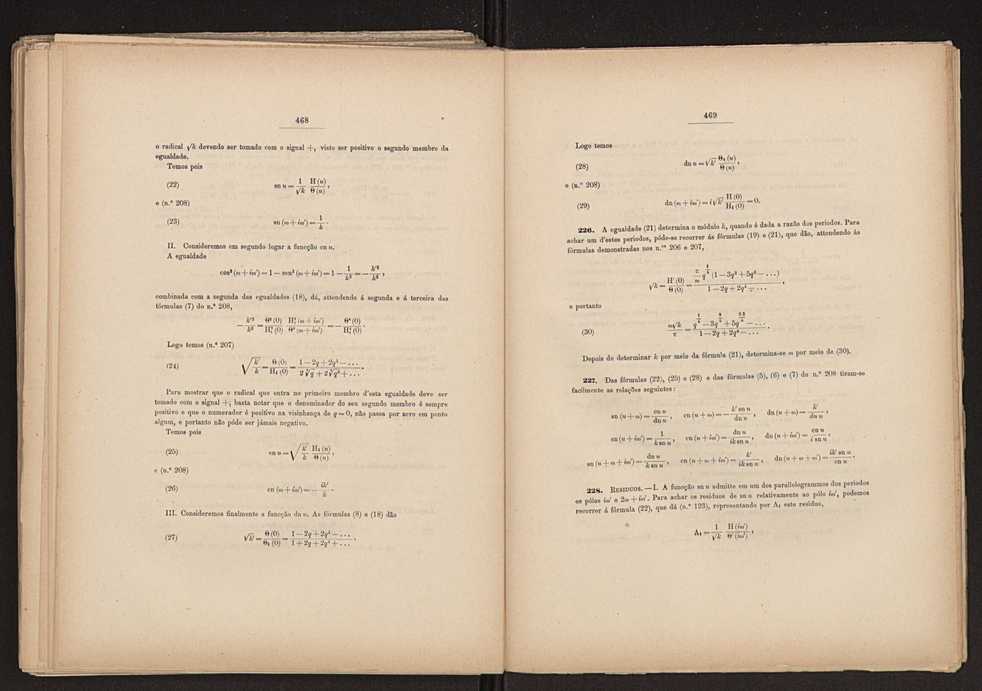 468
o radical √k devendo ser tomado com o signal +, visto ser positivo o segundo membro da
egualdade.
Temos pois
(22) sn u = 1/√k · H (u)/Θ (u),
e (n.º 208)
(23) sn (ω + iω') = 1/k.
II. Consideremos em segundo logar a funcção cn u.
A egualdade
cos² (ω + iω') = 1 — sen² (ω + iω') = 1 — 1/k² = — k'²/k²,
combinada com a segunda das egualdades (18), dá, attendendo á segunda e á terceira das
fórmulas (7) do n.º 208,
Logo temos (n.º 207)
(24) √(k'/k) = Θ (0)/H₁ (0) = (1 — 2q + 2q⁴ — ...)/(2 ∜q + 2 ∜q⁹ + ...).
Para mostrar que o radical que entra no primeiro membro d'esta egualdade deve ser
tomado com o signal +, basta notar que o denominador do seu segundo membro é sempre
positivo e que o numerador é positivo na visinhança de q = 0, não passa por zero em ponto
algum, e portanto não póde ser jámais negativo.
Temos pois
(25) cn u = √(k'/k) · H₁ (u)/Θ (u),
e (n.º 208)
(26) cn (ω + iω') = — ik'/k.
III. Consideremos finalmente a funcção dn u. As fórmulas (8) e (18) dão
(27) √k' = Θ (0)/Θ₁ (0) = (1 — 2q + 2q⁴ — ...)/(1 + 2q + 2q⁴ + ...).
469
Logo temos
(28) dn u = √k' Θ₁ (u)/Θ (u),
e (n.º 208)
(29) dn (ω + iω') = i √k' H (0)/H₁ (0) = 0.
226. A egualdade (21) determina o módulo k, quando é dada a razão dos periodos. Para
achar um d'estes periodos, póde-se recorrer ás fórmulas (19) e (21), que dão, attendendo ás
fórmulas demonstradas nos n.ºˢ 206 e 207,
√k = H' (0)/Θ (0) = (π/ω q^(1/4) (1 — 3q² + 5q⁶ — ...))/(1 — 2q + 2q⁴ — ...),
e portanto
(30) ω√k/π = (q^(1/4) — 3q^(9/4) + 5q^(25/4) — ...)/(1 — 2q + 2q⁴ — ...).
Depois de determinar k por meio da fórmula (21), determina-se ω por meio de (30).
227. Das fórmulas (22), (25) e (28) e das fórmulas (5), (6) e (7) do n.º 208 tiram-se
facilmente as relações seguintes:
sn (u + ω) = cn u/dn u, cn (u + ω) = — k' sn u/dn u, dn (u + ω) = k'/dn u,
sn (u + iω') = 1/k sn u, cn (u + iω') = dn u/ik sn u, dn (u + iω') = cn u/i sn u,
sn (u + ω + iω') = dn u/k cn u, cn (u + ω + iω') = k'/ik cn u, dn (u + ω + iω') = ik' sn u/cn u.
228. Residuos. — I. A funcção sn u admitte em um dos parallelogrammos dos periodos
os pólos iω' e 2ω + iω'. Para achar os residuos de sn u relativamente ao pólo iω', podemos
recorrer á fórmula (22), que dá (n.º 123), representando por A₁ este residuo,
A₁ = 1/√k · H (iω')/Θ' (iω'),